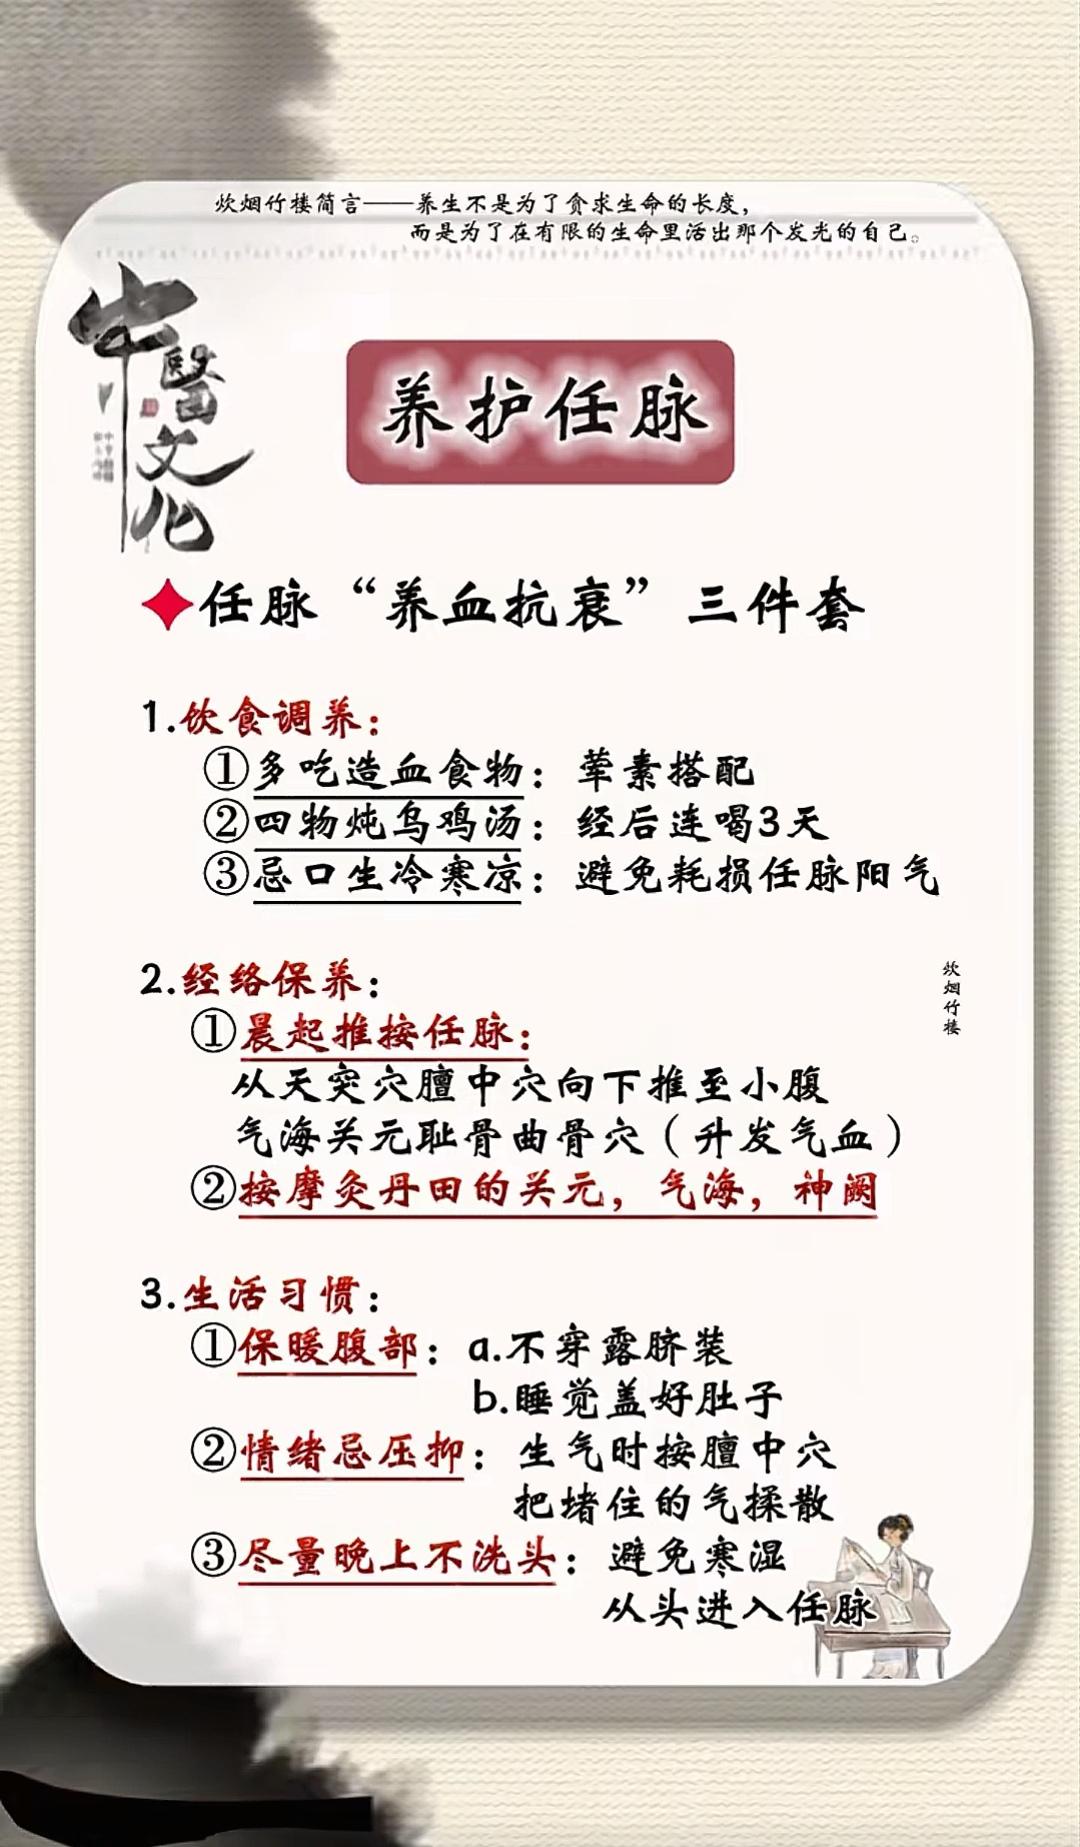 炊烟竹楼简言——养生不是为了贪求生命的长度，
而是为了在有限的生命里活出那个发光的自己。
中醫文化
养护任脉
任脉“养血抗衰”三件套
1.饮食调养：
①多吃造血食物：荤素搭配
②四物炖乌鸡汤：经后连喝3天
③忌口生冷寒凉：避免耗损任脉阳气
2.经络保养：
①晨起推按任脉：
从天突穴膻中穴向下推至小腹
气海关元耻骨曲骨穴（升发气血）
②按摩灸丹田的关元，气海，神阙
炊烟竹楼
3.生活习惯：
①保暖腹部：a.不穿露脐装
b.睡觉盖好肚子
②情绪忌压抑：生气时按膻中穴
把堵住的气揉散
③尽量晚上不洗头：避免寒湿
从头进入任脉